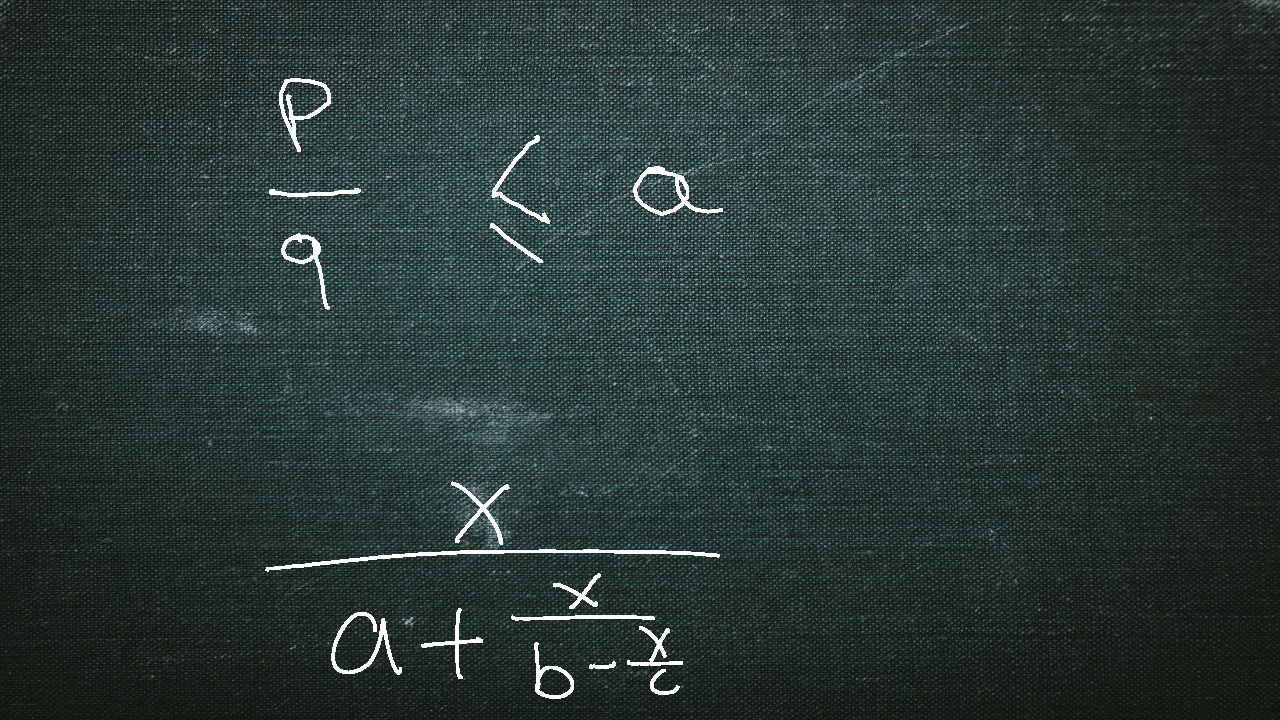 \frac{p}{q} \leqslant a
\frac{x}{a+\frac{x}{b-\frac{x}{c}}}